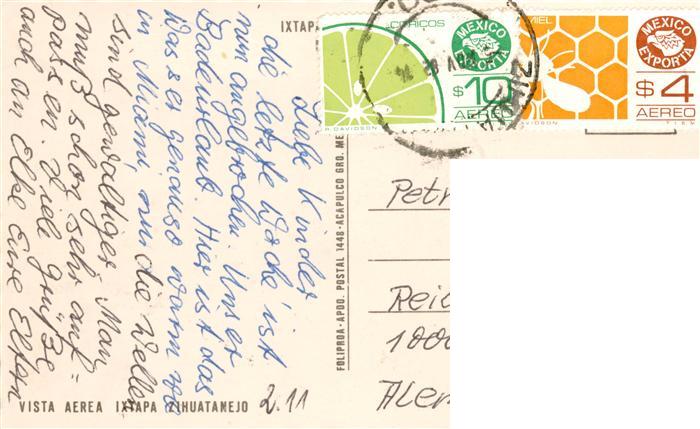 IXTAPA
Liebe Kinder
die letzte Woche ist
nun angebrochen. Unser
Badeurlaub. Hier ist das
Was es genauso warm wie
in Miami, nur die Wellen
sind gewaltiger. Man
muß schon sehr auf=
passen. Viele Grüße
auch an Elke Eure Eltern
2.11
VISTA AEREA IXTAPA ZIHUATANEJO
FOLIPROA-APDO. POSTAL 1448-ACAPULCO GRO. ME
CITRICOS
MEXICO
EXPORTA
$10
AEREO
R. DAVIDSON
MIEL
MEXICO
EXPORTA
$4
AEREO
DAVIDSON
T.I.E.V.
Petr
Reic
1000
Alem